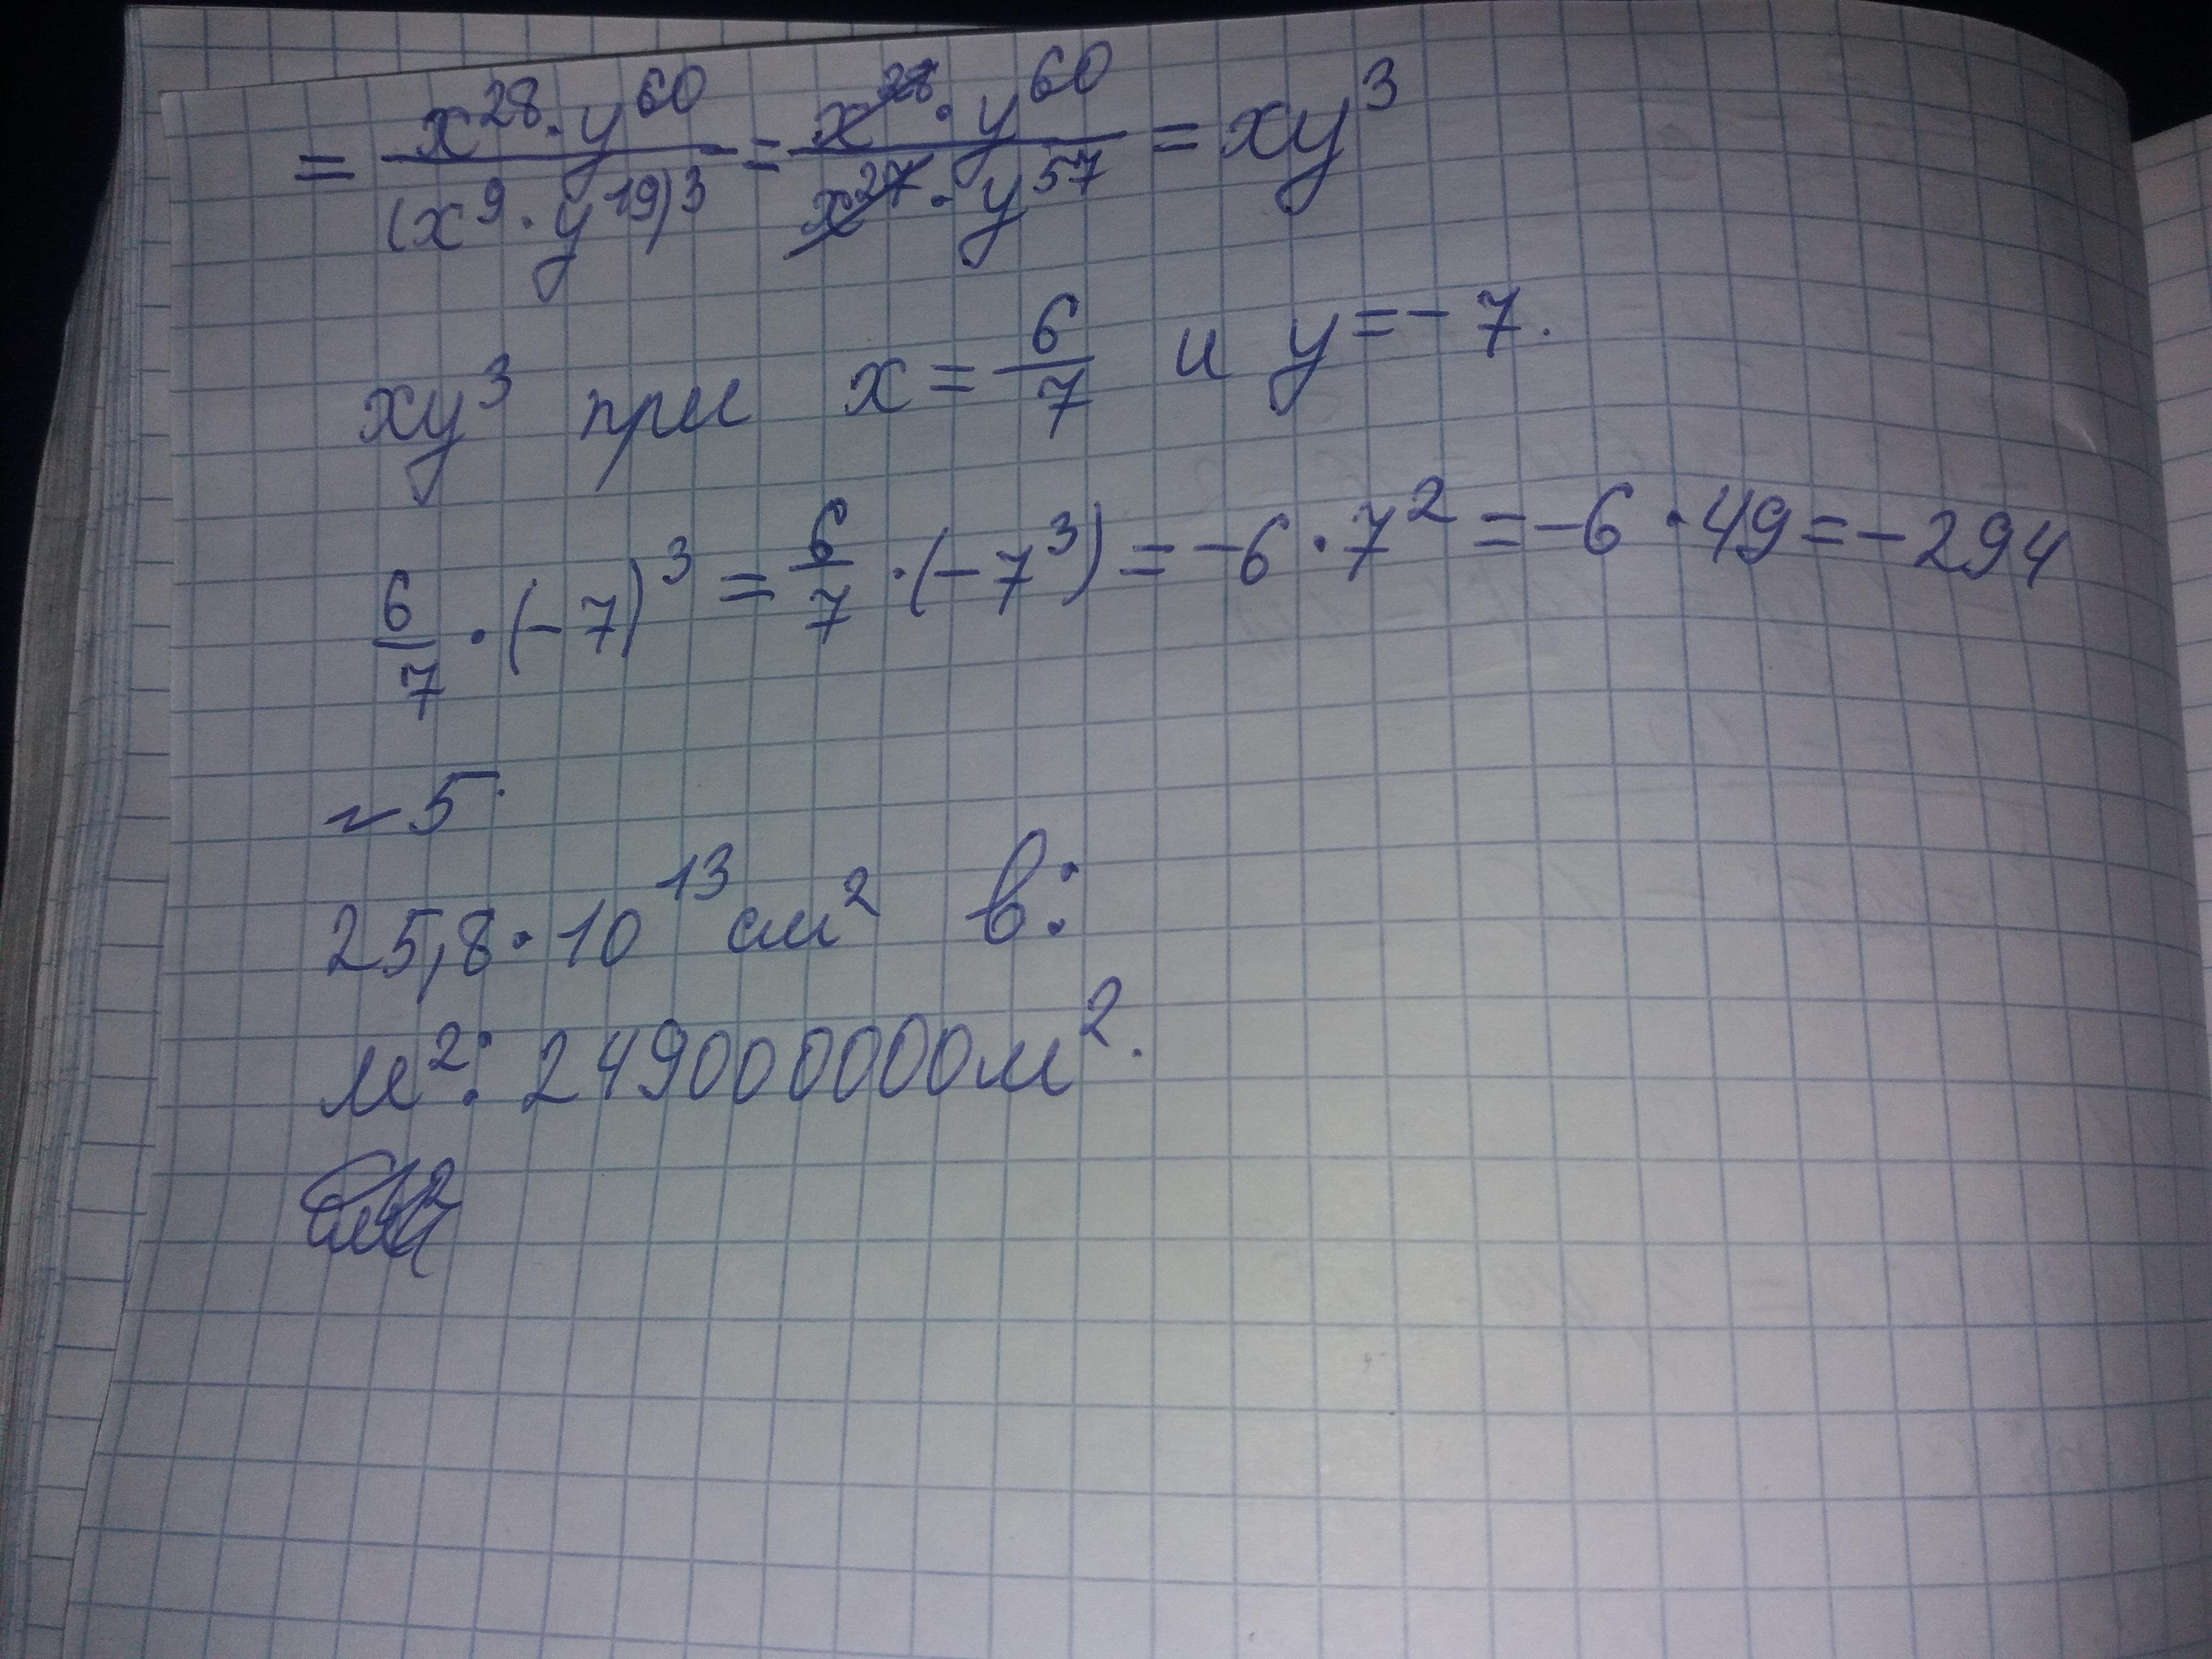 = x²⁸·y⁶⁰/(x⁹·y¹⁹)³ = x²⁸·y⁶⁰/x²⁷·y⁵⁷ = xy³
xy³ при x = 6/7 и y = -7.
6/7 · (-7)³ = 6/7 · (-7³) = -6 · 7² = -6 · 49 = -294
~5.
25,8 · 10¹³ см² в:
м²: 249000 0000м².